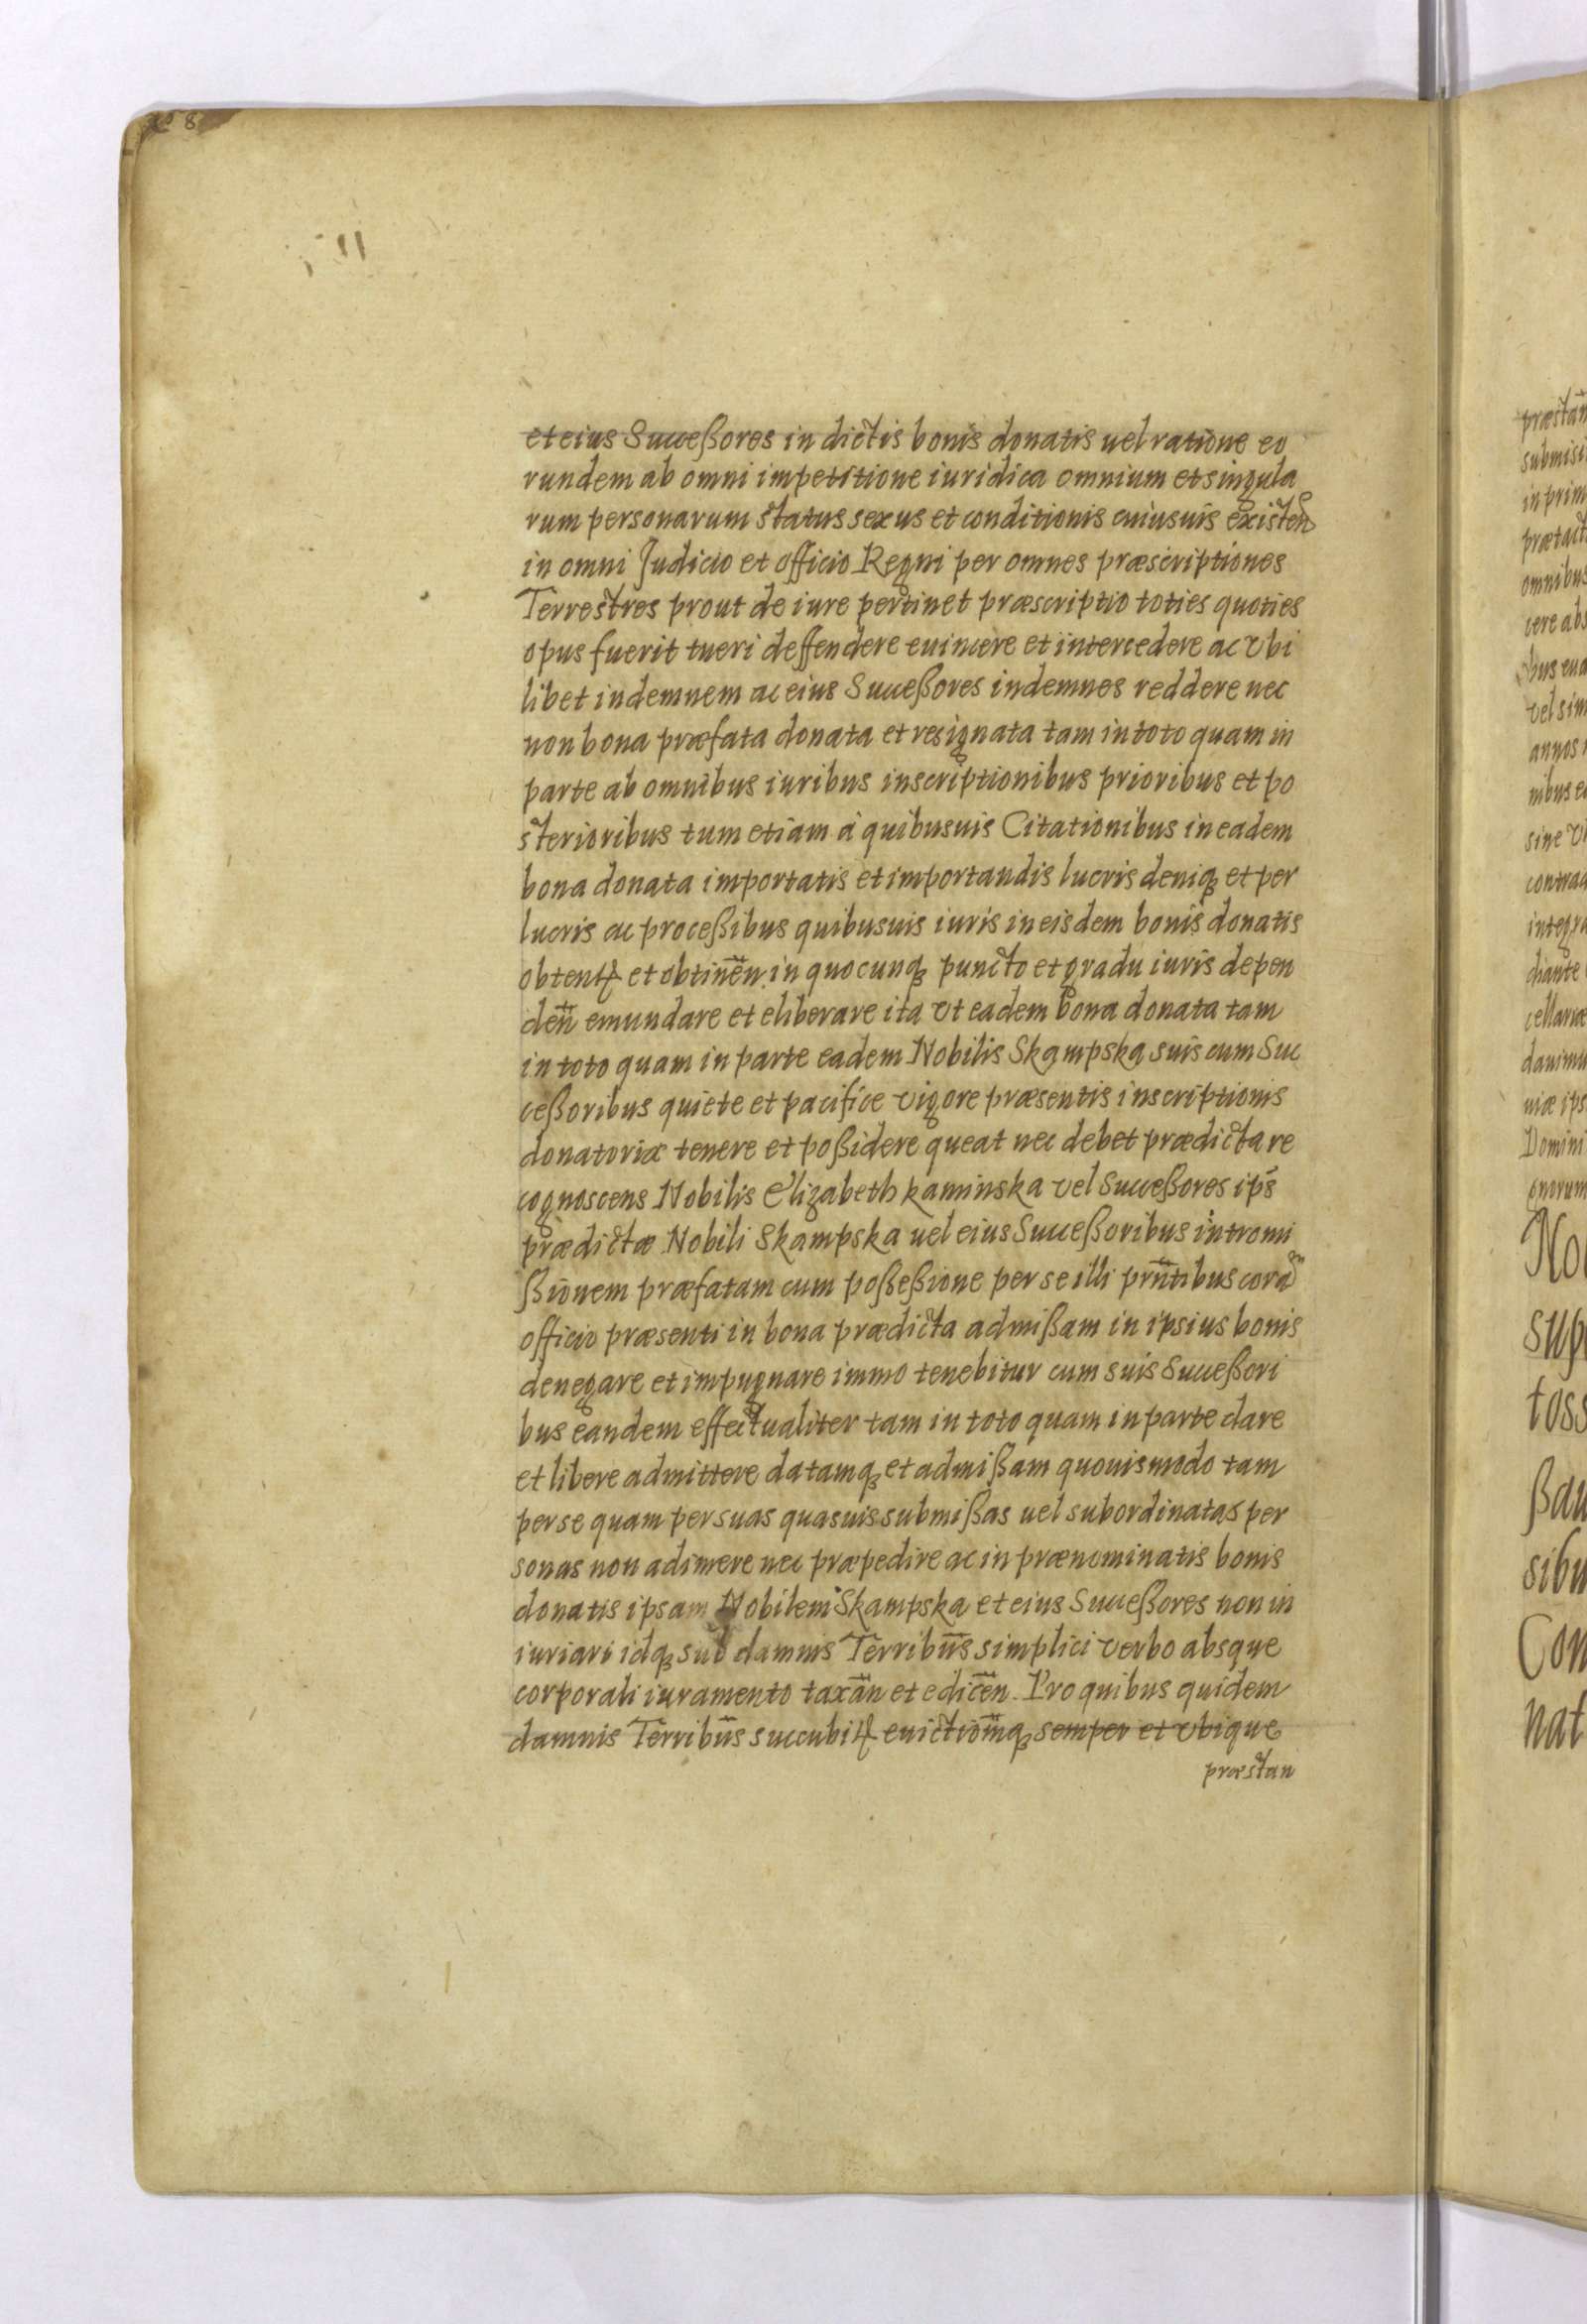 et eius Succeßores in dictis bonis donatis uel ratione eo
rundem ab omni impetitione iuridica omnium et singula
rum personarum status sexus et conditionis cuiusuis existen̄
in omni Judicio et officio Regni per omnes præscriptiones
Terrestres prout de iure pertinet præscriptio toties quoties
opus fuerit tueri deffendere euincere et intercedere ac vbi
libet indemnem ac eius Succeßores indemnes reddere nec
non bona præfata donata et resignata tam in toto quam in
parte ab omnibus iuribus inscriptionibus prioribus et po
sterioribus tum etiam à quibusuis Citationibus in eadem
bona donata importatis et importandis lucris deniqꝫ et per
lucris ac proceßibus quibusuis iuris in eisdem bonis donatis
obtentꝭ et obtinen̄ in quocunqꝫ puncto et gradu iuris depen
den̄ emundare et eliberare ita vt eadem bona donata tam
in toto quam in parte eadem Nobilis Skampska suis cum Suc
ceßoribus quiete et pacifice vigore præsentis inscriptionis
donatoriæ tenere et poßidere queat nec debet prædicta re
cognoscens Nobilis Elizabeth kaminska vel Succeßores ips̄
prædictæ Nobili Skampska uel eius Succeßoribus intromi
ßionem præfatam cum poßeßione per se illi prn̄tibus corā
officio præsenti in bona prædicta admißam in ipsius bonis
denegare et impugnare immo tenebitur cum suis Succeßori
bus eandem effectualiter tam in toto quam in parte dare
et libere admittere datamqꝫ et admißam quouismodo tam
per se quam per suas quasuis submißas uel subordinatas per
sonas non adimere nec præpedire ac in prænominatis bonis
donatis ipsam Nobilem Skampska et eius Succeßores non in
iuriari idqꝫ sub damnis Terribūs simplici verbo absque
corporali iuramento taxān et edicēn. Pro quibus quidem
damnis Terribūs succubitꝭ euictiom̄qꝫ semper et vbique
præstan